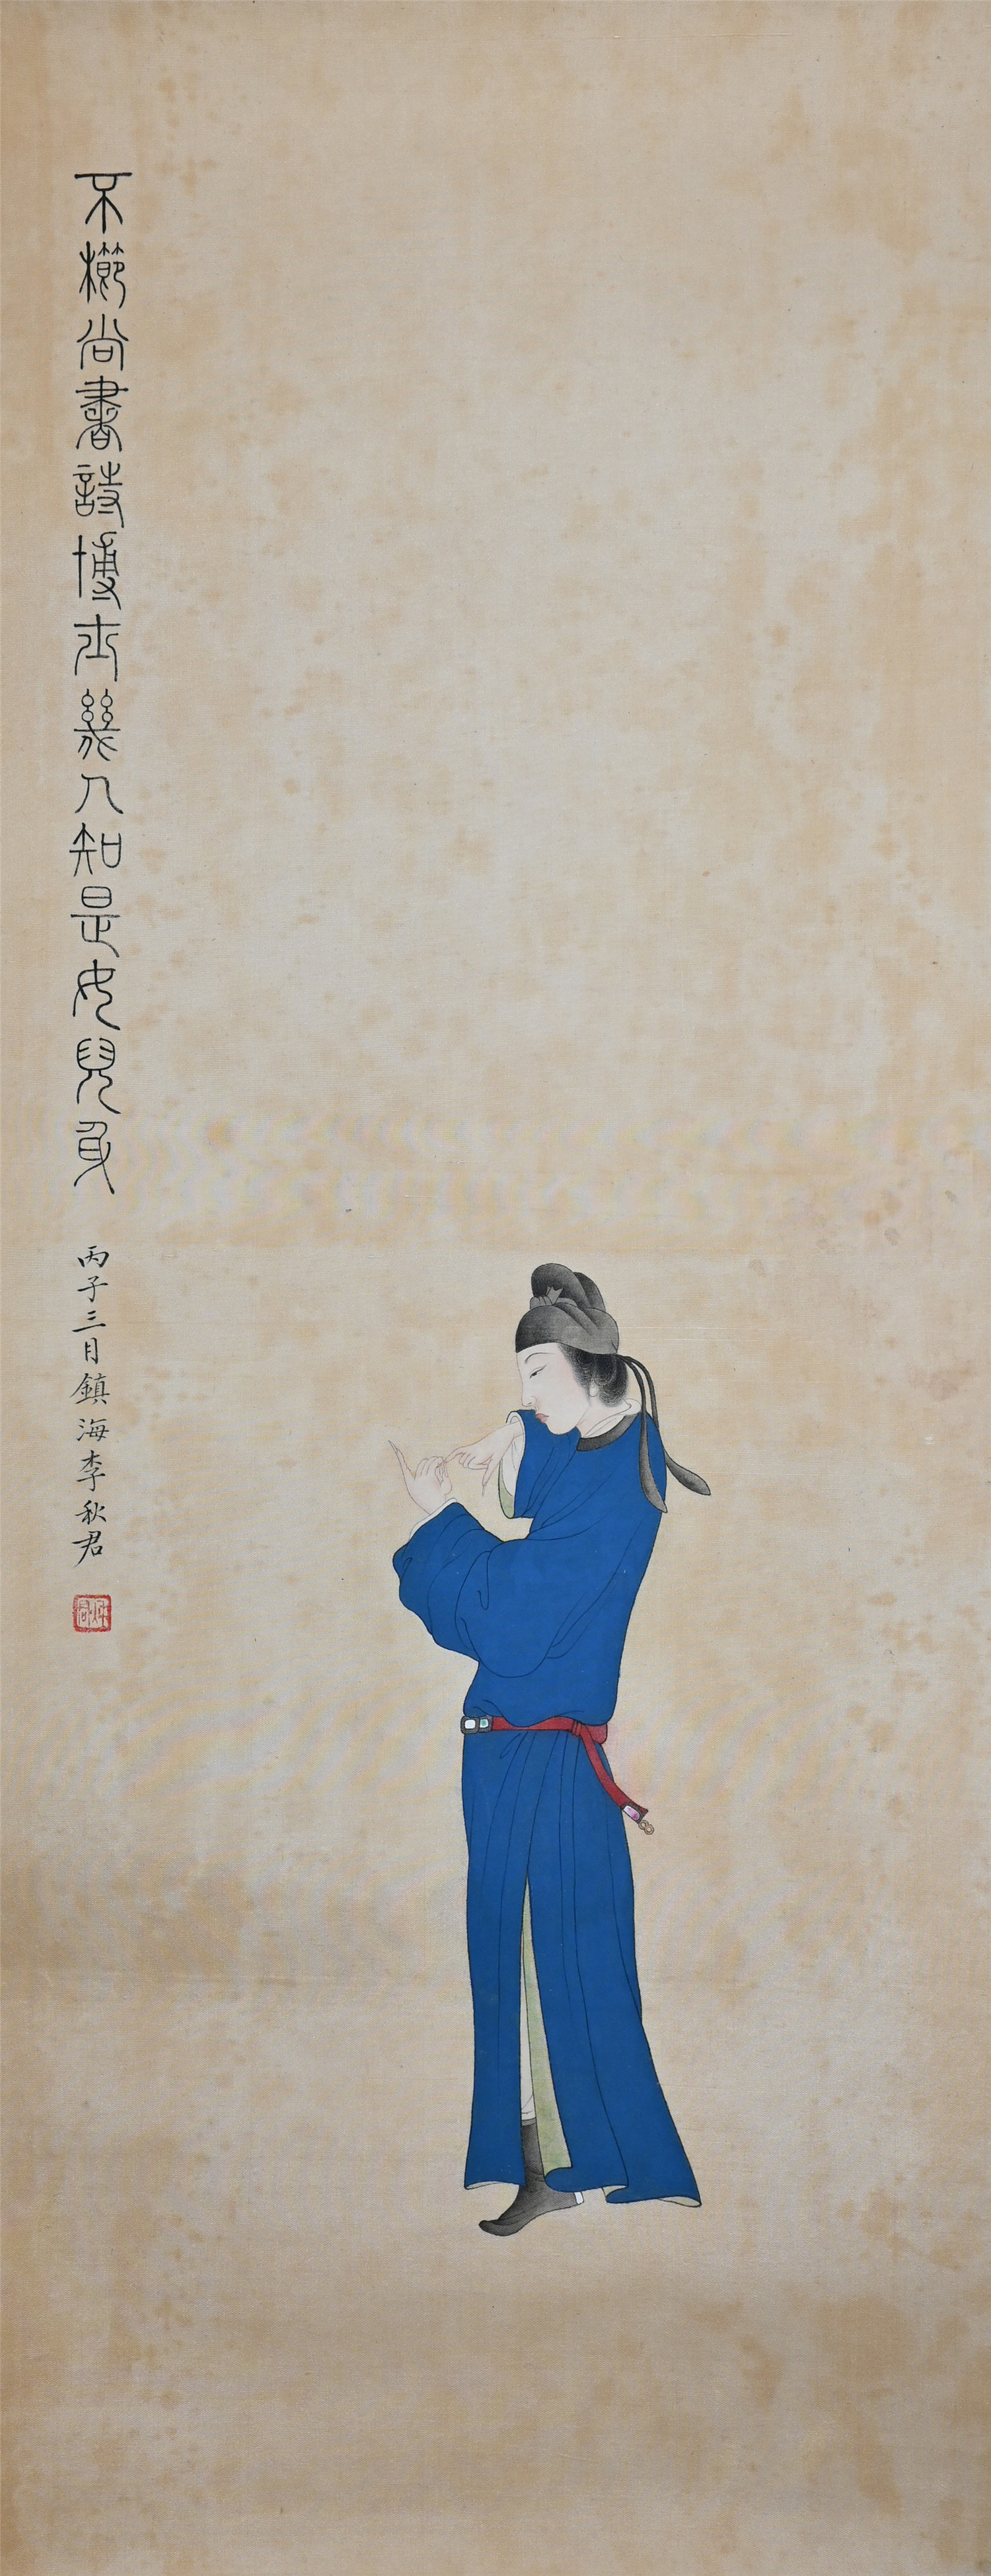 不櫛尚書詩博士幾人知是女兒身
丙子三月鎮海李秋君
秋君